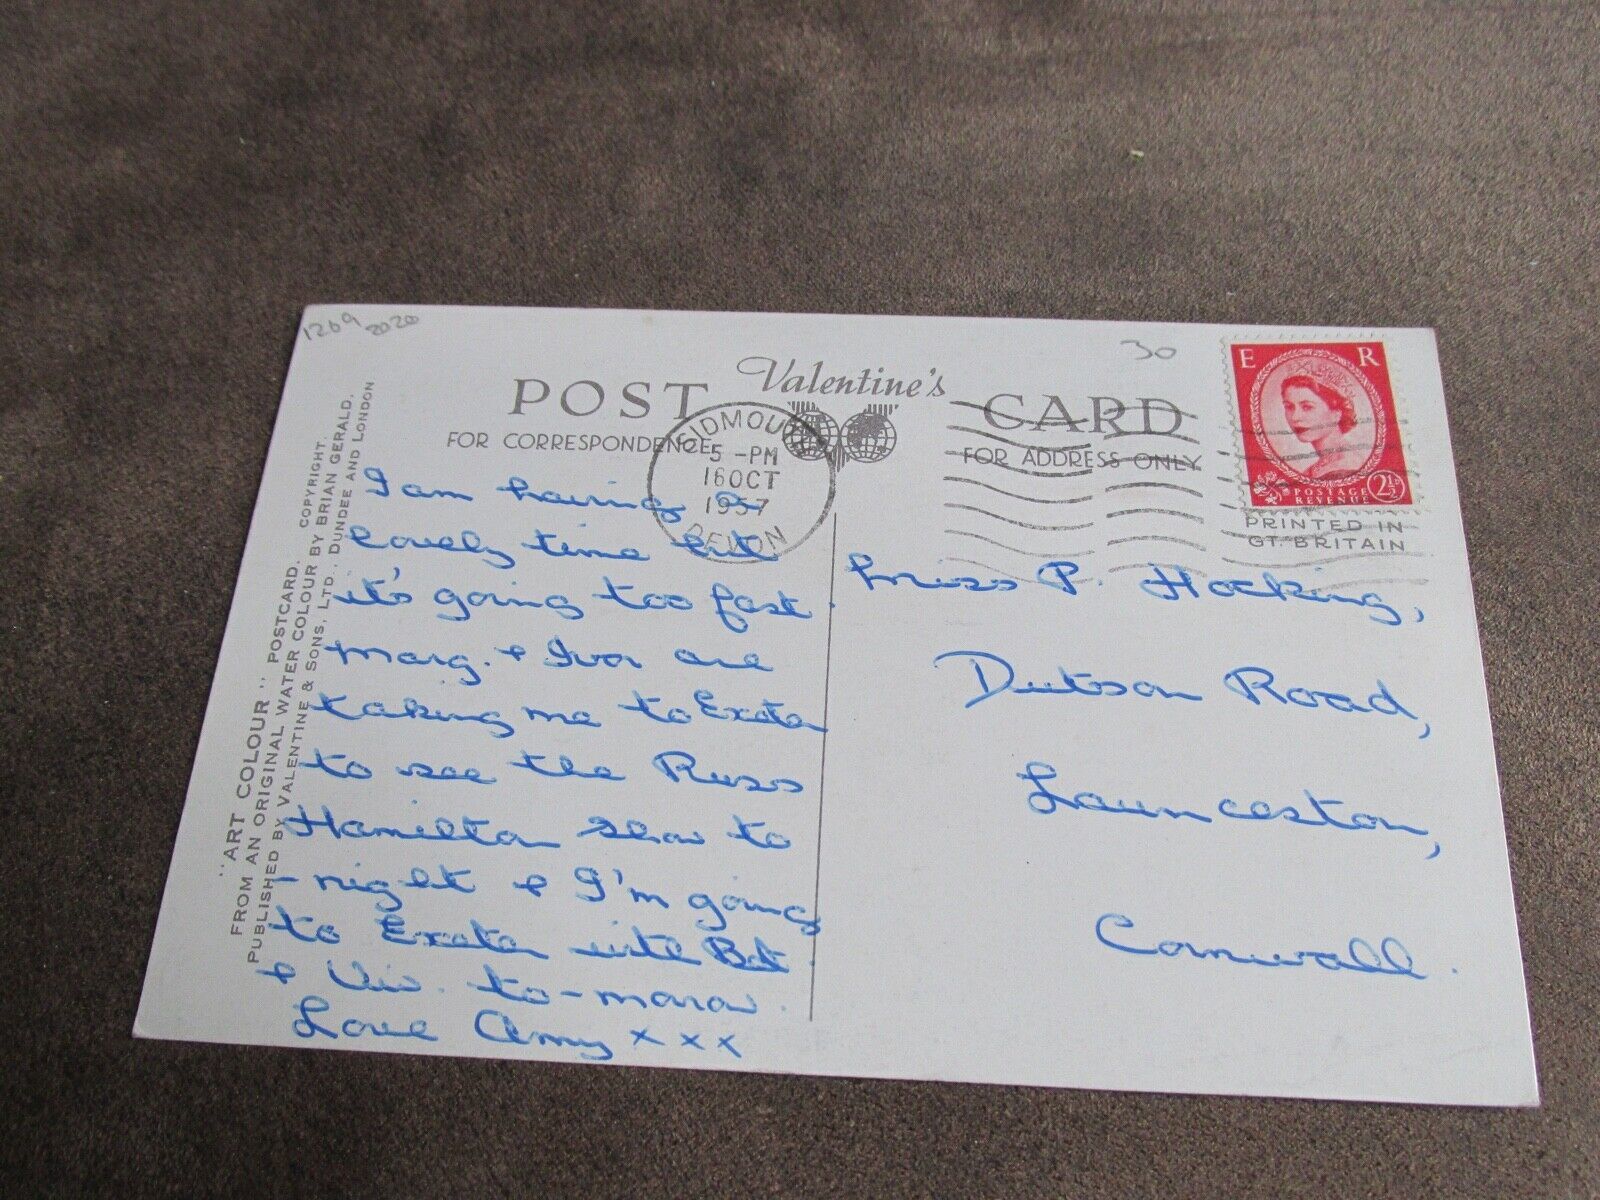 1269 2020
30
Valentine's
POST CARD
FOR CORRESPONDENCE
FOR ADDRESS ONLY
SIDMOUTH
5 -PM
16 OCT
1957
DEVON
E R
POSTAGE
REVENUE
2½
PRINTED IN
GT. BRITAIN
"ART COLOUR" POSTCARD. COPYRIGHT.
FROM AN ORIGINAL WATER COLOUR BY BRIAN GERALD.
PUBLISHED BY VALENTINE & SONS, LTD., DUNDEE AND LONDON
I am having a
lovely time but
it's going too fast.
Marg. & Ivor are
taking me to Exeter
to see the Russ
Hamilton show to
-night & I'm going
to Exeter with
& Viv. to-morrow.
Love Amy x x x
Miss P. Hocking,
Dutson Road,
Launceston,
Cornwall.